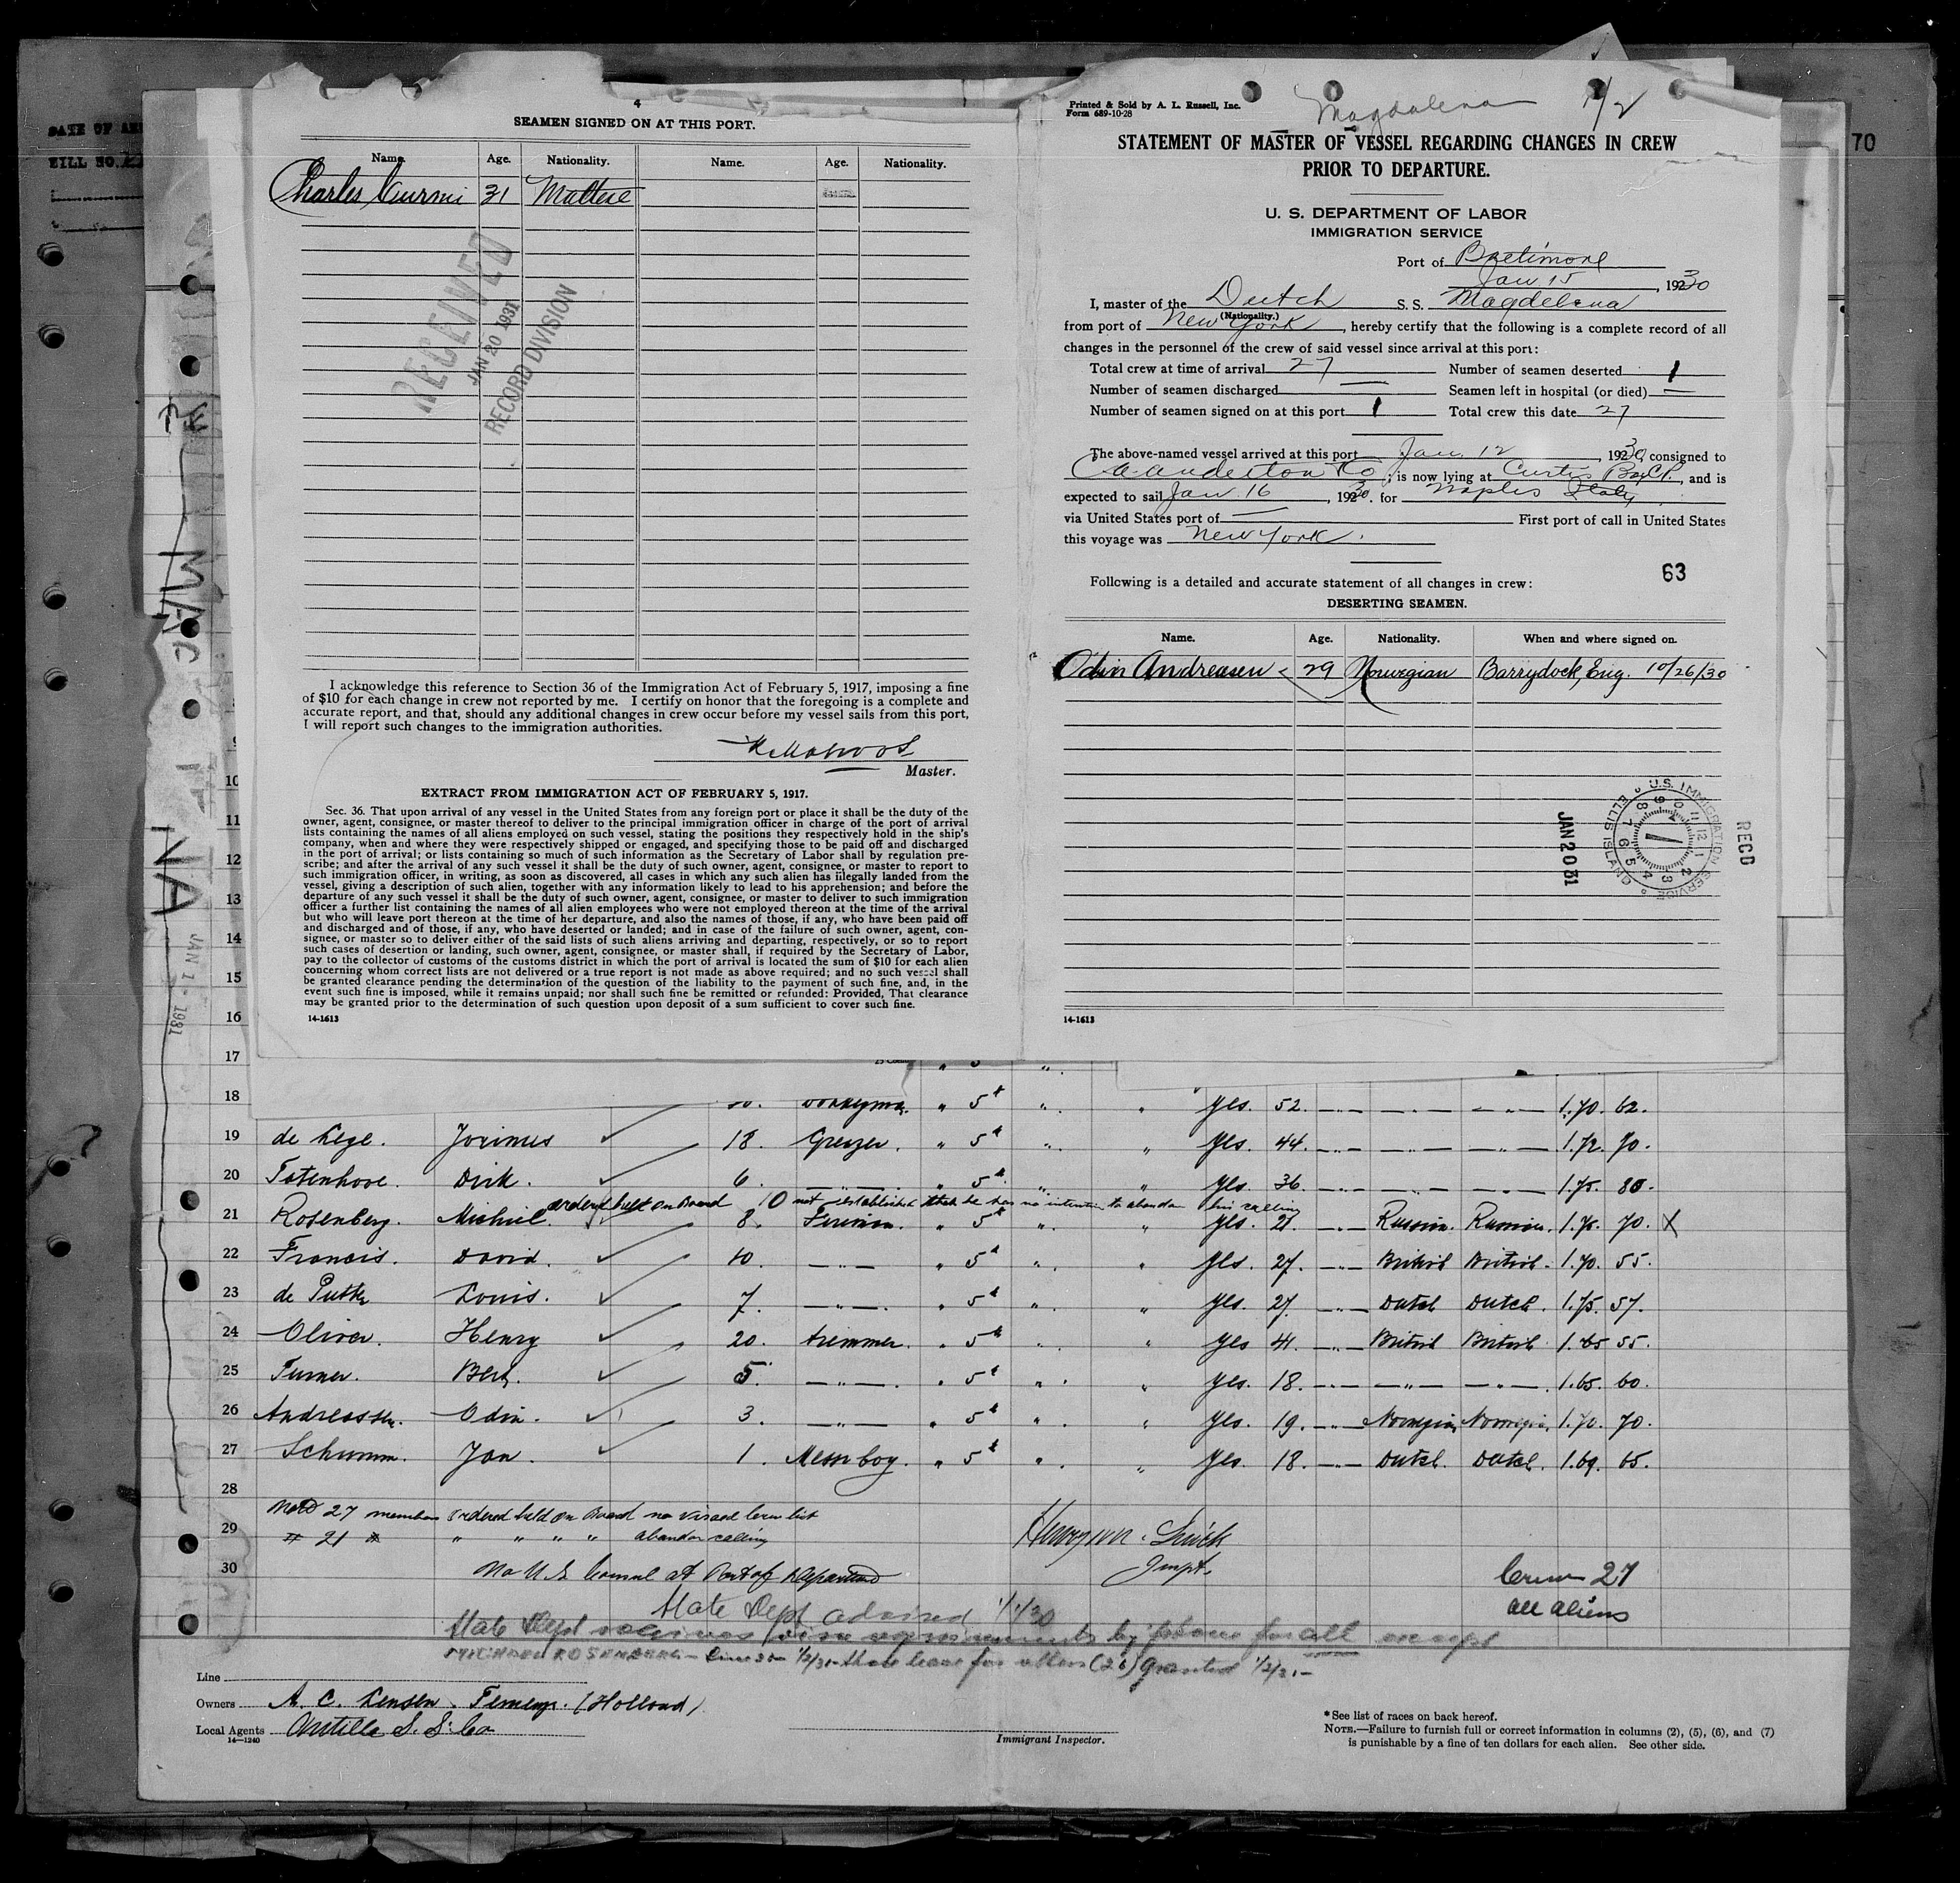 DATE OF
BILL NO.
70
4
SEAMEN SIGNED ON AT THIS PORT.
Name. Age. Nationality. Name. Age. Nationality.
Charles Curmi 31 Maltese
RECEIVED
JAN 20 1931
RECORD DIVISION
I acknowledge this reference to Section 36 of the Immigration Act of February 5, 1917, imposing a fine
of $10 for each change in crew not reported by me. I certify on honor that the foregoing is a complete and
accurate report, and that, should any additional changes in crew occur before my vessel sails from this port,
I will report such changes to the immigration authorities.
Master.
EXTRACT FROM IMMIGRATION ACT OF FEBRUARY 5, 1917.
Sec. 36. That upon arrival of any vessel in the United States from any foreign port or place it shall be the duty of the
owner, agent, consignee, or master thereof to deliver to the principal immigration officer in charge of the port of arrival
lists containing the names of all aliens employed on such vessel, stating the positions they respectively hold in the ship's
company, when and where they were respectively shipped or engaged, and specifying those to be paid off and discharged
in the port of arrival; or lists containing so much of such information as the Secretary of Labor shall by regulation pre-
scribe; and after the arrival of any such vessel it shall be the duty of such owner, agent, consignee, or master to report to
such immigration officer, in writing, as soon as discovered, all cases in which any such alien has illegally landed from the
vessel, giving a description of such alien, together with any information likely to lead to his apprehension; and before the
departure of any such vessel it shall be the duty of such owner, agent, consignee, or master to deliver to such immigration
officer a further list containing the names of all alien employees who were not employed thereon at the time of the arrival
but who will leave port thereon at the time of her departure, and also the names of those, if any, who have been paid off
and discharged and of those, if any, who have deserted or landed; and in case of the failure of such owner, agent, con-
signee, or master so to deliver either of the said lists of such aliens arriving and departing, respectively, or so to report
such cases of desertion or landing, such owner, agent, consignee, or master shall, if required by the Secretary of Labor,
pay to the collector of customs of the customs district in which the port of arrival is located the sum of $10 for each alien
concerning whom correct lists are not delivered or a true report is not made as above required; and no such vessel shall
be granted clearance pending the determination of the question of the liability to the payment of such fine, and, in the
event such fine is imposed, while it remains unpaid; nor shall such fine be remitted or refunded: Provided, That clearance
may be granted prior to the determination of such question upon deposit of a sum sufficient to cover such fine.
14-1613
Printed & Sold by A. L. Russell, Inc.
Form 689-10-28
Magdalena 1/2
STATEMENT OF MASTER OF VESSEL REGARDING CHANGES IN CREW
PRIOR TO DEPARTURE.
U. S. DEPARTMENT OF LABOR
IMMIGRATION SERVICE
Port of Baltimore
Jan 15, 1930
I, master of the Dutch S. S. Magdelena
(Nationality.)
from port of New York, hereby certify that the following is a complete record of all
changes in the personnel of the crew of said vessel since arrival at this port:
Total crew at time of arrival 27 Number of seamen deserted 1
Number of seamen discharged — Seamen left in hospital (or died) —
Number of seamen signed on at this port 1 Total crew this date 27
The above-named vessel arrived at this port Jan. 12, 1930, consigned to
Co; is now lying at Curtis Bay, and is
expected to sail Jan 16, 1930. for Naples Italy
via United States port of — First port of call in United States
this voyage was New York.
Following is a detailed and accurate statement of all changes in crew: 63
DESERTING SEAMEN.
Name. Age. Nationality. When and where signed on.
Odin Andreasen 29 Norwegian Barrydock, Eng. 10/26/30
RECD
U.S. IMMIGRATION SERVICE ELLIS ISLAND
JAN 20 31
14-1613
JAN 1 - 1931
9
10
11
12
13
14
15
16
17
18 Donkeyman. " 5 " " Yes. 52. 1.70. 62.
19 de Lege. Jorinus 18. Greazer. " 5 " " Yes. 44. 1.72. 70.
20 Totenhove. Dirk. 6. " 5 " Yes. 36. 1.75. 80.
ordered held on Board not established that he has no intention to abandon his calling
21 Rosenberg. Michiel. 8. Fireman. " 5 " " Yes. 21. Russian. Russian. 1.75. 70. X
22 Francis. David. 10. " 5 " " Yes. 27. British British. 1.70. 55.
23 de Putter Louis. 7. " 5 " " Yes. 27. Dutch Dutch. 1.75. 57.
24 Oliver. Henry 20. trimmer. " 5 " " Yes 41. British British 1.65 55.
25 Turner. Bert. 5. " 5 " " Yes. 18. 1.65. 60.
26 Andreassen. Odin. 3. " 5 " " Yes. 19. Norwegian Norwegian. 1.70. 70.
27 Schumm. Jan. 1. Messboy. " 5 " " Yes. 18. Dutch. Dutch. 1.69. 65.
28
Noted 27 members ordered held on Board no visaed crew list
29 # 21 " " " " " abandon calling
30 No U.S. Consul at Port of Departure
Inspt.
Crew 27
all aliens
State Dept advised 1/1/30
State Dept visa requirements by phone for all except
MICHAEL ROSENBERG - 1/2/31 - shore leave for others (26) granted 1/2/31 -
Line
Owners A. C. Lensen. Terneuzen. (Holland)
Local Agents Antilla S. S. Co
14—1240
Immigrant Inspector.
* See list of races on back hereof.
NOTE.—Failure to furnish full or correct information in columns (2), (5), (6), and (7)
is punishable by a fine of ten dollars for each alien. See other side.